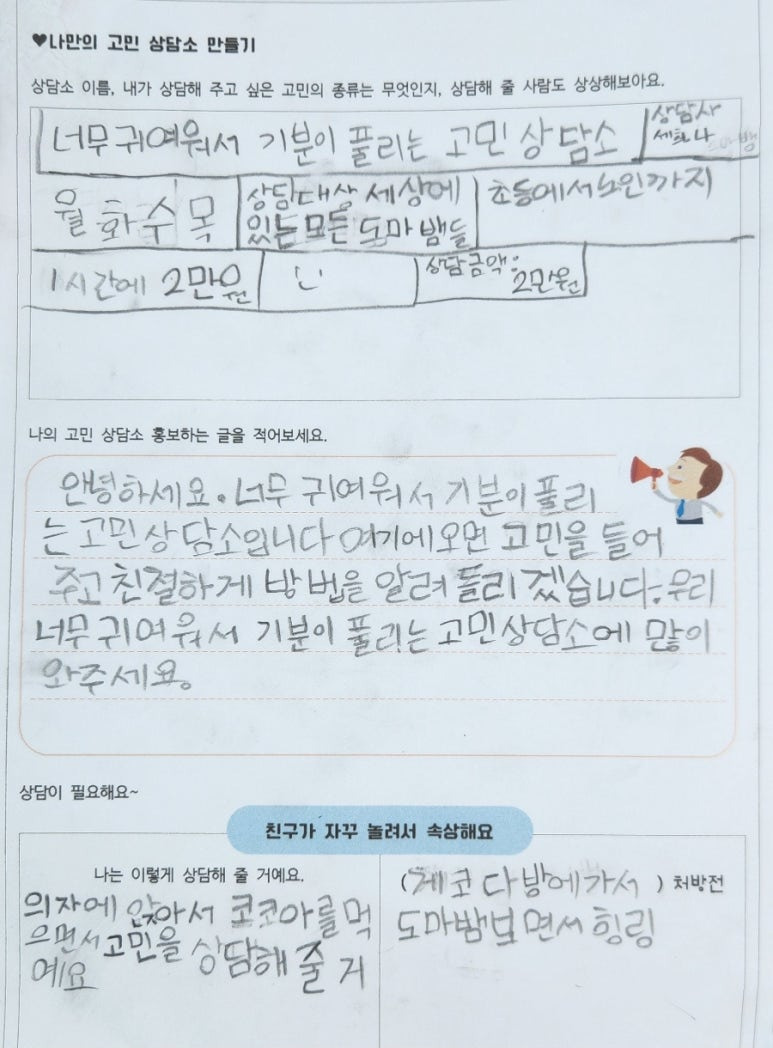 ♥나만의 고민 상담소 만들기
상담소 이름, 내가 상담해 주고 싶은 고민의 종류는 무엇인지, 상담해 줄 사람도 상상해보아요.
너무 귀여워서 기분이 풀리는 고민 상담소
상담사
월 화 수 목
상담대상 세상에
있는 모든 도마뱀들
초등에서노인까지
1시간에 2만원
상담금액:
2만원
나의 고민 상담소 홍보하는 글을 적어보세요.
안녕하세요. 너무 귀여워서 기분이풀리
는 고민상담소입니다 여기에오면 고민을 들어
주고 친절하게 방법을 알려 들리겠습니다. 우리
너무귀여워서 기분이 풀리는 고민상담소에 많이
와주세요.
상담이 필요해요~
친구가 자꾸 놀려서 속상해요
나는 이렇게 상담해 줄 거예요.
의자에 앉아서 코코아를먹
으면서고민을 상담해 줄 거
예요
(게코다방에가서 ) 처방전
도마뱀보면서 힐링